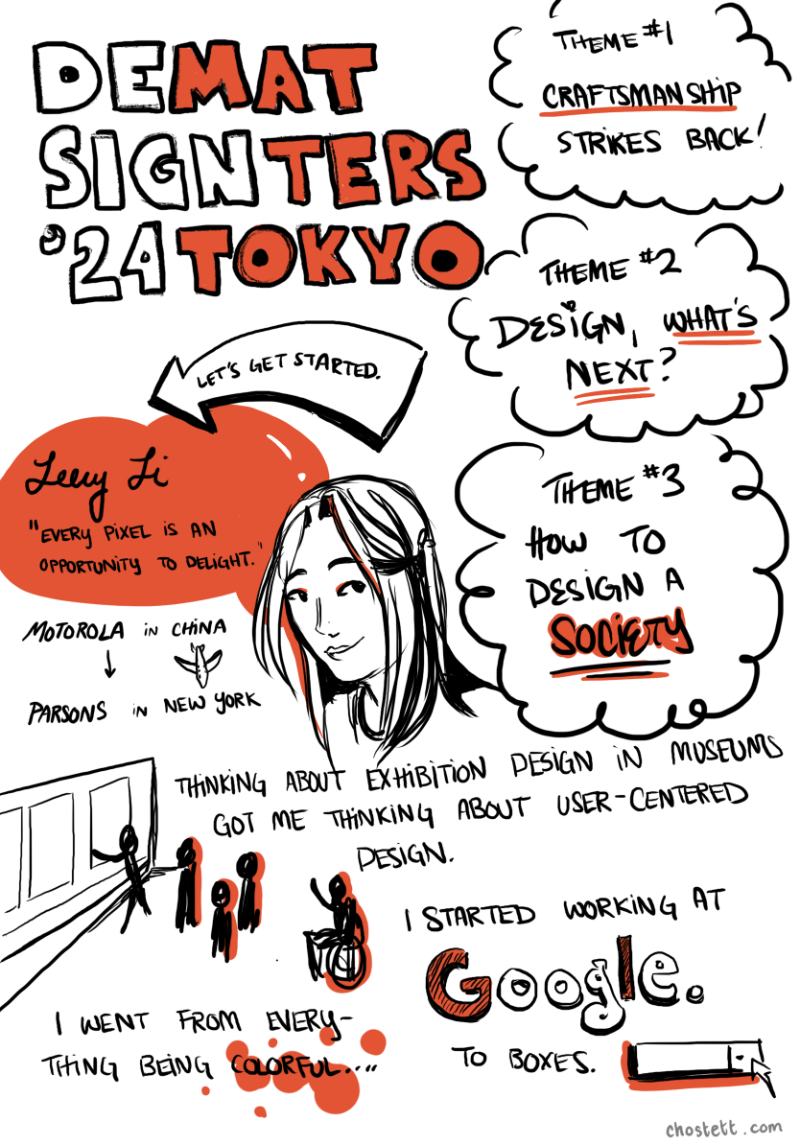 DEMAT
SIGNTERS
'24 TOKYO
THEME #1
CRAFTSMANSHIP
STRIKES BACK!
THEME #2
DESIGN, WHAT'S
NEXT?
THEME #3
HOW TO
DESIGN A
SOCIETY
LET'S GET STARTED.
Leey Li
"EVERY PIXEL IS AN
OPPORTUNITY TO DELIGHT."
MOTOROLA IN CHINA
PARSONS IN NEW YORK
THINKING ABOUT EXHIBITION DESIGN IN MUSEUMS
GOT ME THINKING ABOUT USER-CENTERED
DESIGN.
I STARTED WORKING AT
Google.
I WENT FROM EVERY-
THING BEING COLORFUL....
TO BOXES.
chostett.com